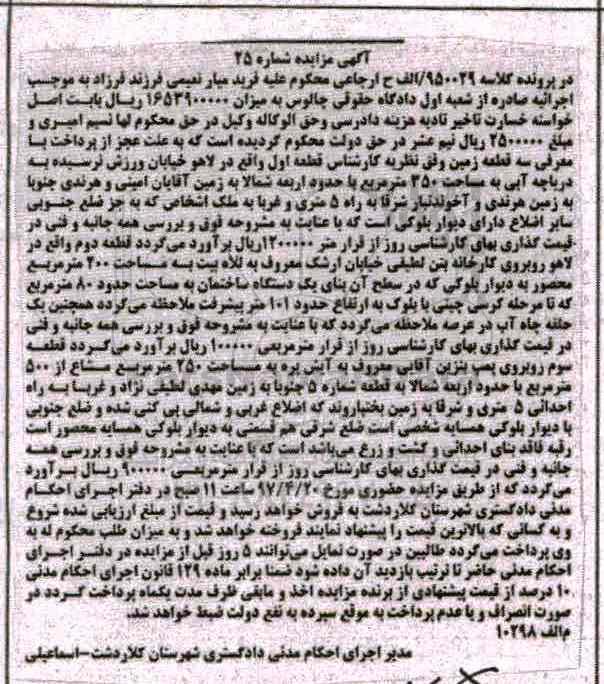 آگهی مزایده شماره ۲۵
در پرونده کلاسه ۹۵۰۰۲۹/الف ح ارجاعی محکوم علیه فرید میار نعیمی فرزند فرزاد به موجب
اجرائیه صادره از شعبه اول دادگاه حقوقی چالوس به میزان ۱۶۵۳۹۰۰۰۰۰ ریال بابت اصل
خواسته خسارت تاخیر تادیه هزینه دادرسی وحق الوکاله وکیل در حق محکوم لها نسیم امیری و
مبلغ ۲۵۰۰۰۰۰ ریال نیم عشر در حق دولت محکوم گردیده است که به علت عجز از پرداخت با
معرفی سه قطعه زمین وفق نظریه کارشناس قطعه اول واقع در لاهو خیابان ورزش نرسیده به
دریاچه آبی به مساحت ۳۵۰ مترمربع با حدود اربعه شمالا به زمین آقایان امینی و هرندی جنوبا
به زمین هرندی و آخوندتبار شرقا به راه ۵ متری و غربا به ملک اشخاص که به جز ضلع جنوبی
سایر اضلاع دارای دیوار بلوکی است که با عنایت به مشروحه فوق و بررسی همه جانبه و فنی در
قیمت گذاری بهای کارشناسی روز از قرار متر ۱۲۰۰۰۰۰ریال برآورد می‌گردد قطعه دوم واقع در
لاهو روبروی کارخانه بتن لطیفی خیابان ارشک معروف به تلاه بیت به مساحت ۲۰۰ مترمربع
محصور به دیوار بلوکی که در سطح آن بنای یک دستگاه ساختمان به مساحت حدود ۸۰ مترمربع
که تا مرحله کرسی چینی با بلوک به ارتفاع حدود ۱۰۱ متر پیشرفت ملاحظه می‌گردد همچنین یک
حلقه چاه آب در عرصه ملاحظه می‌گردد که با عنایت به مشروحه فوق و بررسی همه جانبه و فنی
در قیمت گذاری بهای کارشناسی روز از قرار مترمربعی ۱۰۰۰۰۰ ریال برآورد می‌گردد قطعه
سوم روبروی پمپ بنزین آقایی معروف به آیش بره به مساحت ۲۵۰ مترمربع مشاع از ۵۰۰
مترمربع با حدود اربعه شمالا به قطعه شماره ۵ جنوبا به زمین مهدی لطیفی نژاد و غربا به راه
احداثی ۵ متری و شرقا به زمین بختیاروند که اضلاع غربی و شمالی پی کنی شده و ضلع جنوبی
با دیوار بلوکی همسایه شخصی است ضلع شرقی هم قسمتی به دیوار بلوکی همسایه محصور است
رقبه فاقد بنای احداثی و کشت و زرع می‌باشد است که با عنایت به مشروحه فوق و بررسی همه
جانبه و فنی در قیمت گذاری بهای کارشناسی روز از قرار مترمربعی ۹۰۰۰۰۰ ریال برآورد
می‌گردد که از طریق مزایده حضوری مورخ ۹۷/۴/۲۰ ساعت ۱۱ صبح در دفتر اجرای احکام
مدنی دادگستری شهرستان کلاردشت به فروش خواهد رسید و قیمت از مبلغ ارزیابی شده شروع
و به کسانی که بالاترین قیمت را پیشنهاد نمایند فروخته خواهد شد و به میزان طلب محکوم له به
وی پرداخت می‌گردد طالبین در صورت تمایل می‌توانند ۵ روز قبل از مزایده در دفتر اجرای
احکام مدنی حاضر تا ترتیب بازدید آن داده شود ضمنا برابر ماده ۱۲۹ قانون اجرای احکام مدنی
۱۰ درصد از قیمت پیشنهادی از برنده مزایده اخذ و مابقی ظرف مدت یکماه پرداخت گردد در
صورت انصراف و یا عدم پرداخت به موقع سپرده به نفع دولت ضبط خواهد شد.
م‌الف ۱۰۲۹۸
مدیر اجرای احکام مدنی دادگستری شهرستان کلاردشت-اسماعیلی